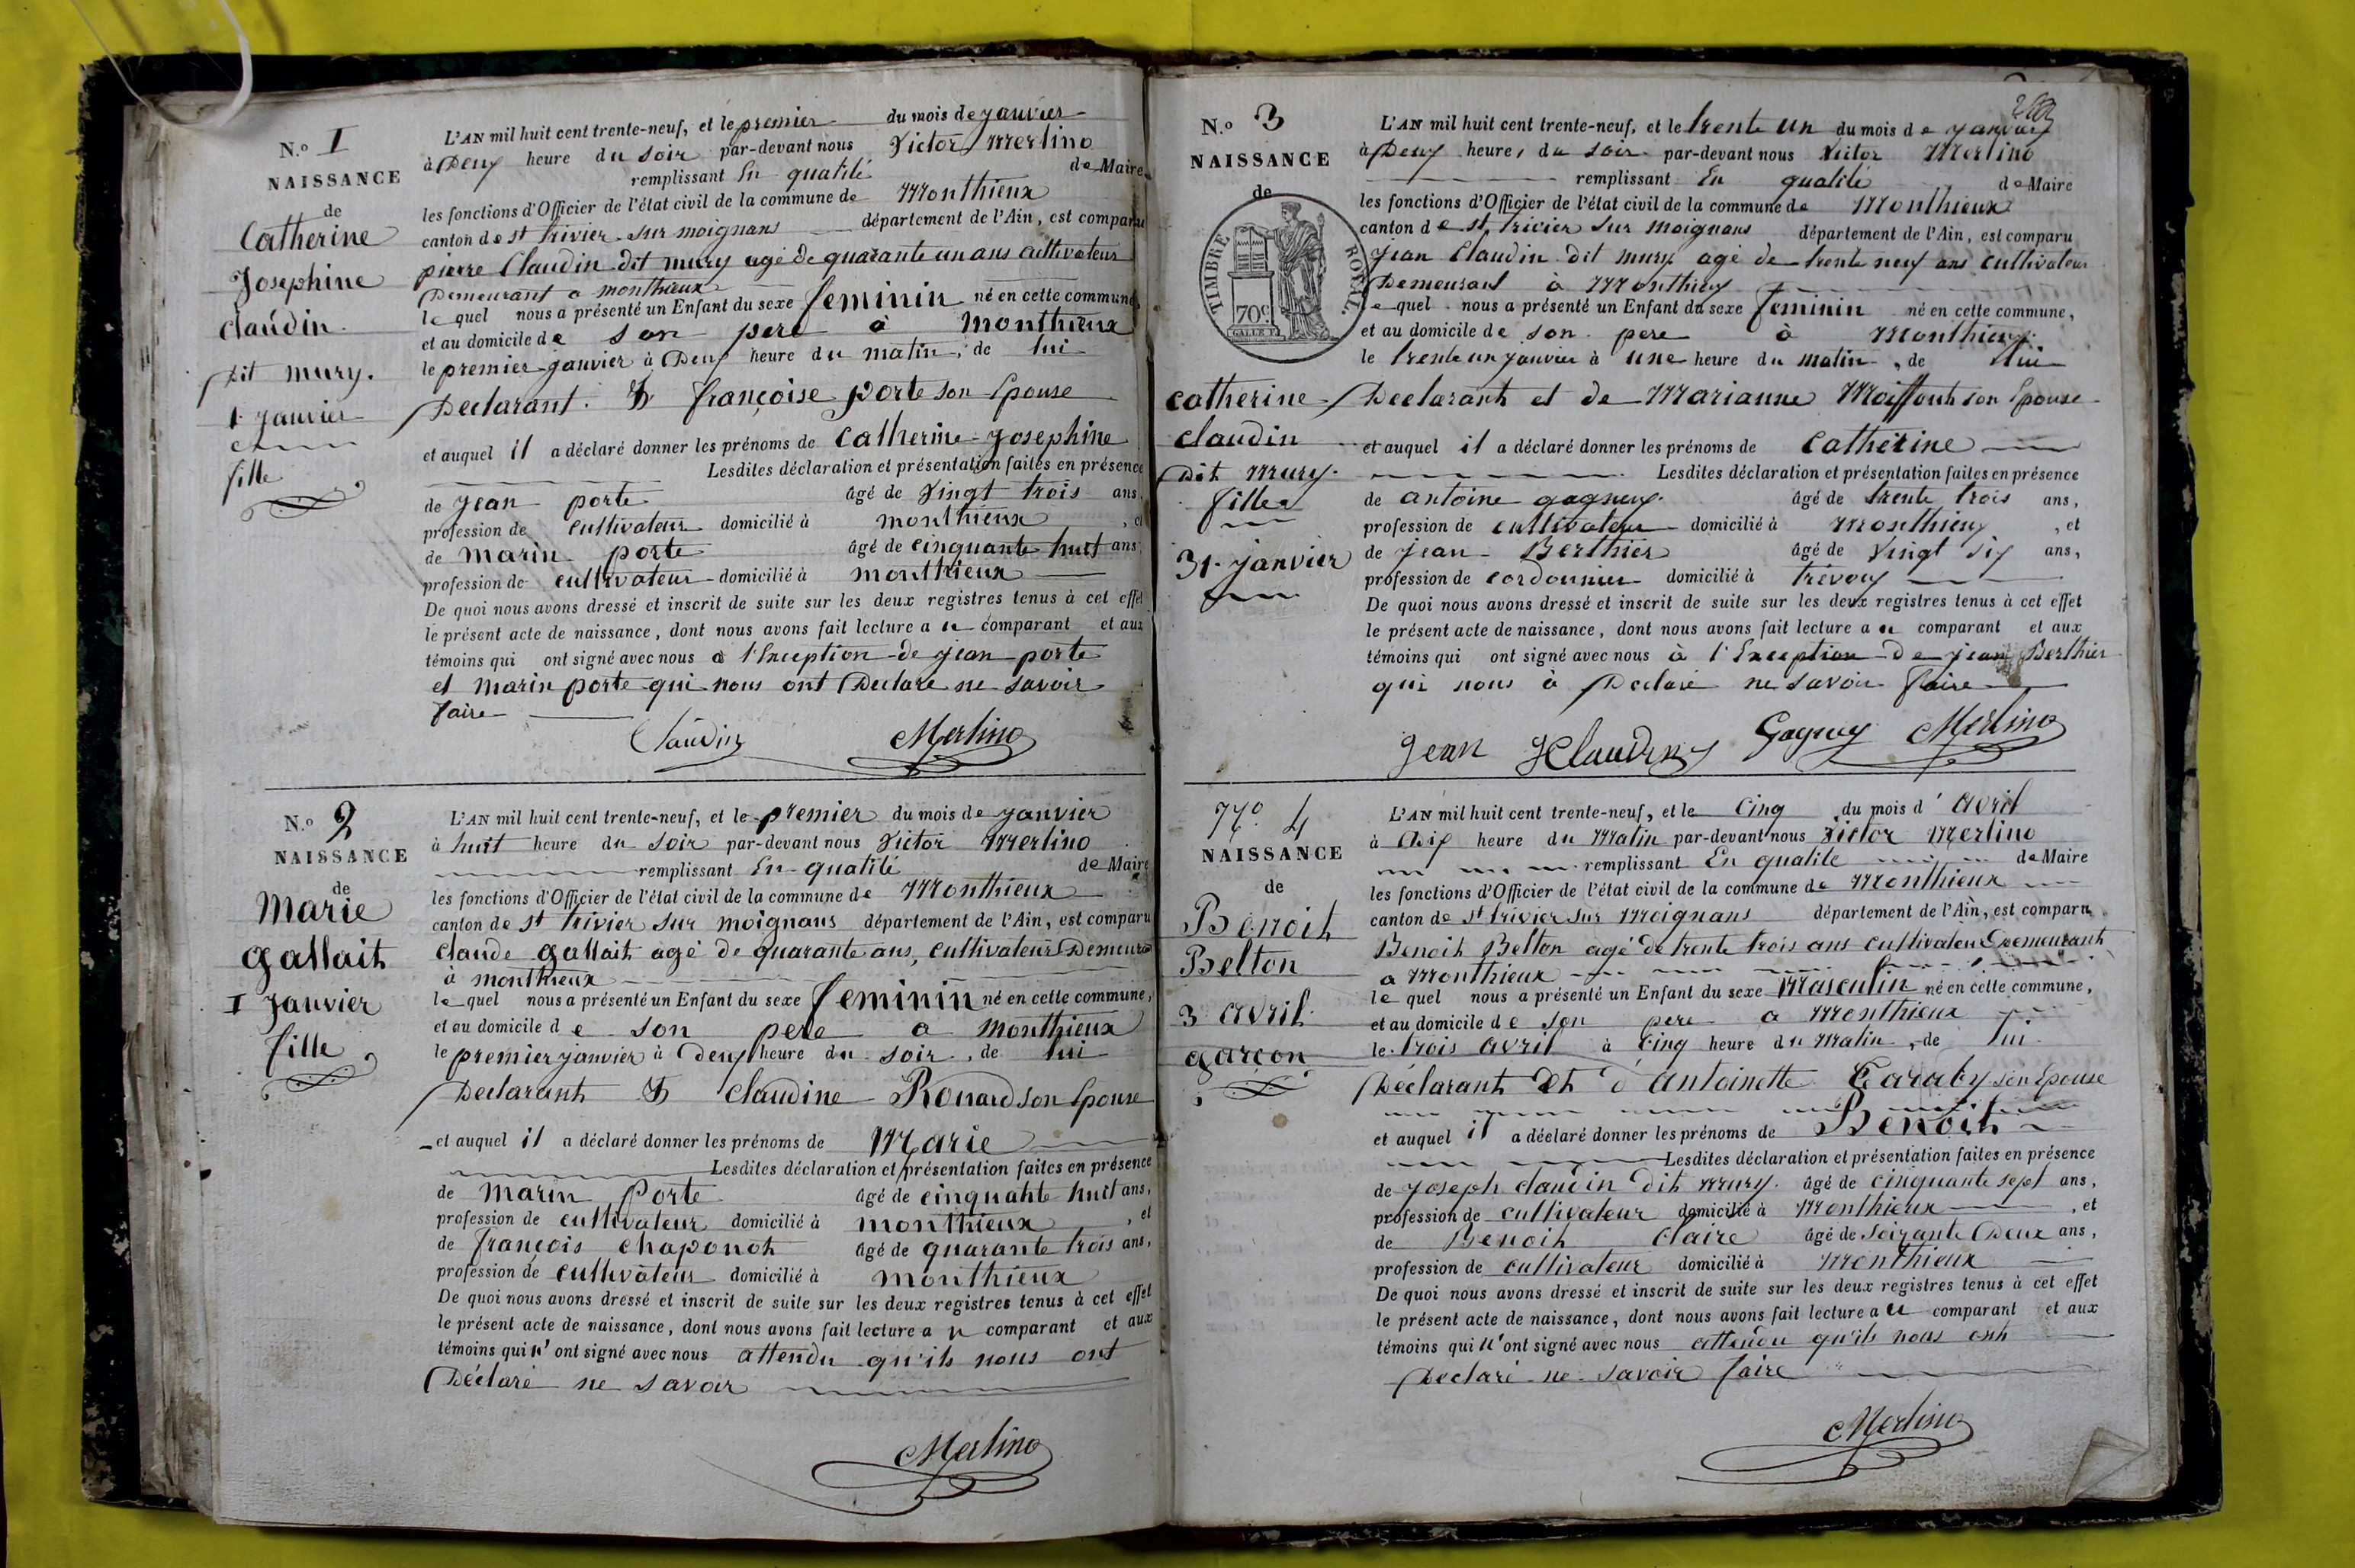 N.o 1
NAISSANCE
de
Catherine
Josephine
Claudin
dit mury.
1 Janvier
fille
L'AN mil huit cent trente-neuf, et le premier du mois de janvier
à Deux heure du soir par-devant nous Victor Merlino
remplissant En qualité de Maire
les fonctions d'Officier de l'état civil de la commune de Monthieux
canton de st trivier sur moignans département de l'Ain, est comparu
pierre Claudin dit mury agé de quarante un ans cultivateur
Demeurant a monthieux
lequel nous a présenté un Enfant du sexe feminin né en cette commune,
et au domicile de son pere à Monthieux
le premier janvier à Deux heure du matin, de lui
Declarant & françoise porte son Epouse
et auquel il a déclaré donner les prénoms de Catherine Josephine
Lesdites déclaration et présentation faites en présence
de Jean porte âgé de Vingt trois ans,
profession de cultivateur domicilié à monthieux, et
de marin porte âgé de cinquante huit ans,
profession de cultivateur domicilié à monthieux
De quoi nous avons dressé et inscrit de suite sur les deux registres tenus à cet effet
le présent acte de naissance, dont nous avons fait lecture au comparant et aux
témoins qui ont signé avec nous à l'Exception de jean porte
et marin porte qui nous ont Declaré ne savoir
faire
Claudin Merlino
N.o 2
NAISSANCE
de
Marie
gallait
1 Janvier
fille
L'AN mil huit cent trente-neuf, et le premier du mois de janvier
à huit heure du soir par-devant nous Victor Merlino
remplissant En qualité de Maire
les fonctions d'Officier de l'état civil de la commune de Monthieux
canton de st trivier sur moignans département de l'Ain, est comparu
claude gallait agé de quarante ans, cultivateur Demeurant
à monthieux
lequel nous a présenté un Enfant du sexe feminin né en cette commune,
et au domicile de son pere a monthieux
le premier janvier à Deux heure du soir, de lui
Declarant & Claudine Rouard son Epouse
et auquel il a déclaré donner les prénoms de Marie
Lesdites déclaration et présentation faites en présence
de marin porte âgé de cinquante huit ans,
profession de cultivateur domicilié à monthieux, et
de françois chaponot âgé de quarante trois ans,
profession de cultivateur domicilié à monthieux
De quoi nous avons dressé et inscrit de suite sur les deux registres tenus à cet effet
le présent acte de naissance, dont nous avons fait lecture au comparant et aux
témoins qui n'ont signé avec nous attendu qu'ils nous ont
Déclaré ne savoir
Merlino
N.o 3
NAISSANCE
de
TIMBRE ROYAL.
70c
catherine
claudin
Dit Mury.
fille
31 janvier
L'AN mil huit cent trente-neuf, et le trente un du mois de janvier
à Deux heure, du soir par-devant nous Victor Merlino
remplissant En qualité de Maire
les fonctions d'Officier de l'état civil de la commune de Monthieux
canton de st trivier sur moignans département de l'Ain, est comparu
jean Claudin dit mury agé de trente neuf ans cultivateur
Demeurant à Monthieux
lequel nous a présenté un Enfant du sexe feminin né en cette commune,
et au domicile de son pere à Monthieux
le trente un janvier à une heure du matin, de lui
Declarant et de Marianne son Epouse
et auquel il a déclaré donner les prénoms de Catherine
Lesdites déclaration et présentation faites en présence
de antoine gagneux âgé de trente trois ans,
profession de cultivateur domicilié à Monthieux, et
de jean Berthier âgé de Vingt six ans,
profession de cordonnier domicilié à trévoux
De quoi nous avons dressé et inscrit de suite sur les deux registres tenus à cet effet
le présent acte de naissance, dont nous avons fait lecture au comparant et aux
témoins qui ont signé avec nous à l'Exception de jean Berthier
qui nous à Declaré ne savoir faire
Jean Claudin Merlino
No. 4
NAISSANCE
de
Benoit
Belton
3 avril
garçon
L'AN mil huit cent trente-neuf, et le Cinq du mois d'avril
à dix heure du Matin par-devant nous Victor Merlino
remplissant En qualité de Maire
les fonctions d'Officier de l'état civil de la commune de Monthieux
canton de st trivier sur Moignans département de l'Ain, est comparu
Benoit Belton agé de trente trois ans cultivateur Demeurant
a Monthieux
lequel nous a présenté un Enfant du sexe Masculin né en cette commune,
et au domicile de son pere a Monthieux
le trois avril à Cinq heure du Matin, de lui
Déclarant Et d'Antoinette son Epouse
et auquel il a déclaré donner les prénoms de Benoit
Lesdites déclaration et présentation faites en présence
de joseph claudin dit mury. âgé de cinquante sept ans,
profession de cultivateur domicilié à Monthieux, et
de Benoit Claire âgé de soixante Deux ans,
profession de cultivateur domicilié à Monthieux
De quoi nous avons dressé et inscrit de suite sur les deux registres tenus à cet effet
le présent acte de naissance, dont nous avons fait lecture au comparant et aux
témoins qui n'ont signé avec nous attendu qu'ils nous ont
Déclaré ne savoir faire
Merlino